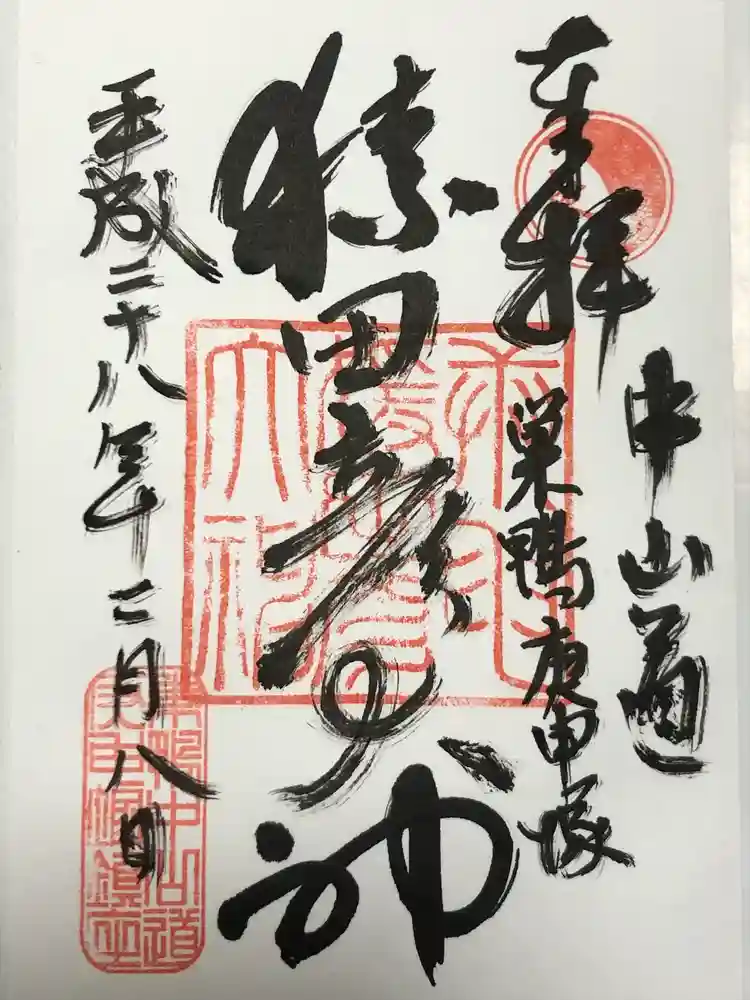 奉拝
中山道
巣鴨庚申塚
猿田彦の神
平成二十八年二月八日
巣鴨中山道
庚申塚鎮座